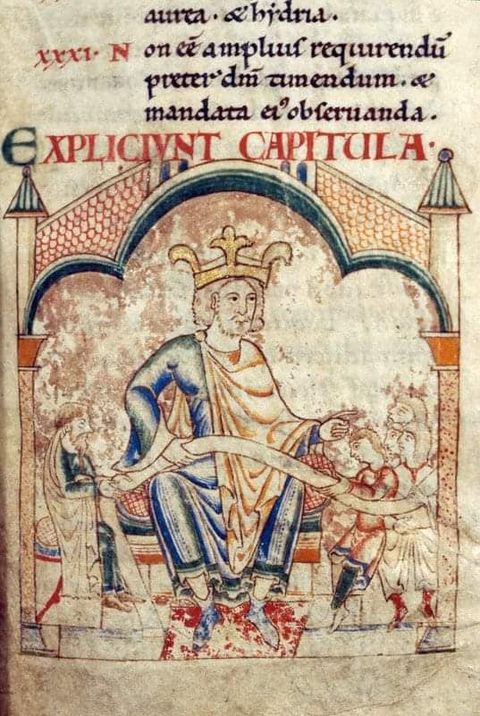 aurea · & hydria .
xxxi · N on eē ampliuſ requirendū
preter dn̄m timendum · &
mandata eiꝰ obſeruanda .
EXPLICIVNT CAPITULA ·